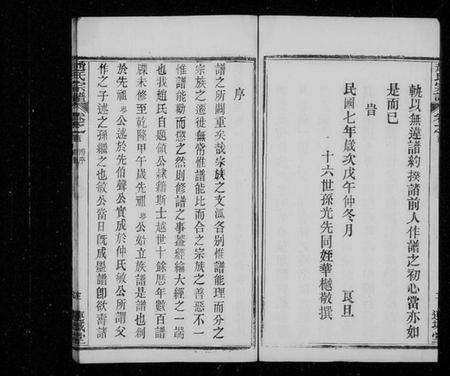 軌以無違譜約揆諸前人作譜之初心當亦如
是而已
旹
民國七年歲次戊午仲冬月　　良旦
十六世孫光先同姪華樾敬撰
序
譜之所關重矣哉宗族之支派各别惟譜能理而分之
宗族之遷徙無常惟譜能比而合之宗族之善惡不一
惟譜能勸而懲之然則修譜之事蓋經綸大經之一端
也我趙氏自題領公隸籍斯土越世十餘歷年數百譜
牒未修至乾隆甲午歲先祖
公始立族譜是譜也創
於先祖
公述於先伯聲公實成於仲氏敏公所謂父
作之子述之孫繼之也敏公當日既成墨譜卽欲壽諸
趙氏宗譜